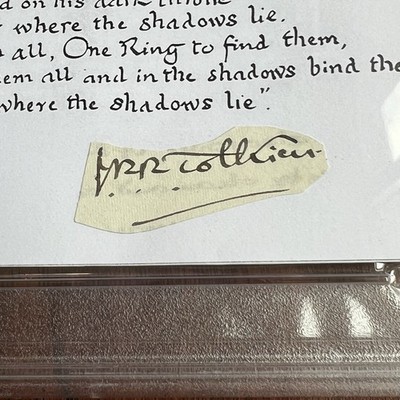 d on his dark throne
where the shadows lie.
all, One Ring to find them,
em all and in the shadows bind the
where the shadows lie".
JRRTolkien